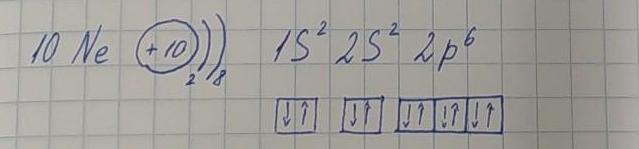 10 Ne +10 ))) 2 8 1S² 2S² 2p⁶
↓↑ ↓↑ ↓↑ ↓↑ ↓↑